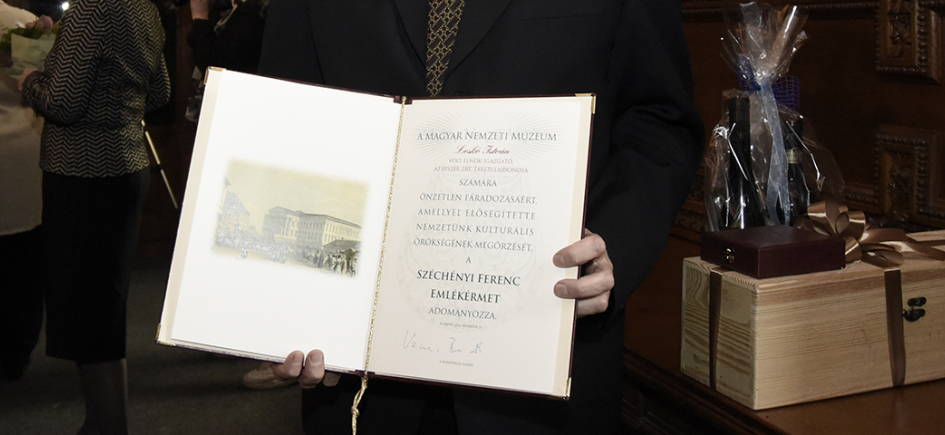 A MAGYAR NEMZETI MÚZEUM
Leskó István
VOLT ELNÖK-IGAZGATÓ,
SZÁMÁRA
ÖNZETLEN FÁRADOZÁSAÉRT,
AMELLYEL ELŐSEGÍTETTE
NEMZETÜNK KULTURÁLIS
ÖRÖKSÉGÉNEK MEGŐRZÉSÉT,
A
SZÉCHÉNYI FERENC
EMLÉKÉRMET
ADOMÁNYOZZA.